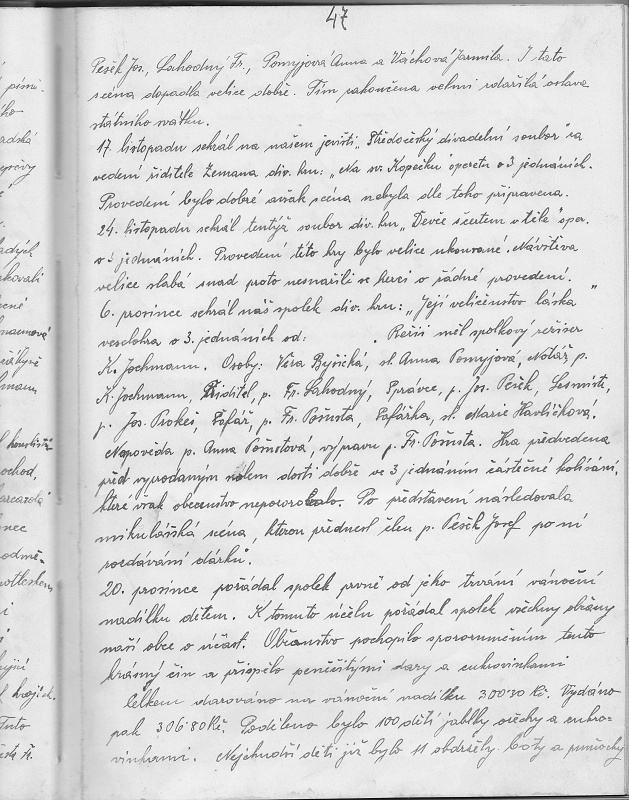 47
Pešek Jos., Lahodný Fr., Pomyjová Anna a Váchová Jarmila. I tato
scéna dopadla velice dobře. Tím zakončena velmi zdařilá oslava
státního svátku.
17. listopadu sehrál na našem jevišti „Středočeský divadelní soubor" za
vedení ředitele Zemana div. hru: „Na sv. Kopečku" opereta o 3 jednáních.
Provedení bylo dobré avšak scéna nebyla dle toho připravena.
24. listopadu sehrál tentýž soubor div. hru „Děvče s čertem v těle" oper.
o 3 jednáních. Provedení této hry bylo velice Návštěva
velice slabá snad proto nesnažili se herci o řádné provedení.
6. prosince sehrál náš spolek div. hru: „Její veličenstvo láska"
veselohra o 3. jednáních od: . Režii měl spolkový režiser
K. Jochmann. Osoby: Věra Byšická, sl. Anna Pomyjová, Notář, p.
K. Jochmann, Ředitel, p. Fr. Lahodný, Správce, p. Jos. Pešek, Lesmistr,
p. Jos. Prokeš, Farář, p. Fr. Pošusta, Farářka, sl. Marie Havlíčková.
Nápověda p. Anna Pošustová, výprava p. Fr. Pošusta. Hra předvedena
před vyprodaným sálem dosti dobře ve 3 jednáním částečné kolísání,
které však obecenstvo nepozorovalo. Po představení následovala
mikulášská scéna, kterou přednesl člen p. Pešek Josef po ní
rozdávání dárků".
20. prosince pořádal spolek prvně od jeho trvání vánoční
nadílku dětem. K tomuto účelu požádal spolek všechny občany
naší obce o účast. Občanstvo pochopilo s porozuměním tento
krásný čin a přispělo peněžitými dary a cukrovinkami
Celkem darováno na vánoční nadílku 3.00030 Kč. Vydáno
pak 306880 Kč. Poděleno bylo 100 dětí jablky ořechy a cukro-
vinkami. Nejchudší děti jíž bylo 11 obdržely boty a punčochy